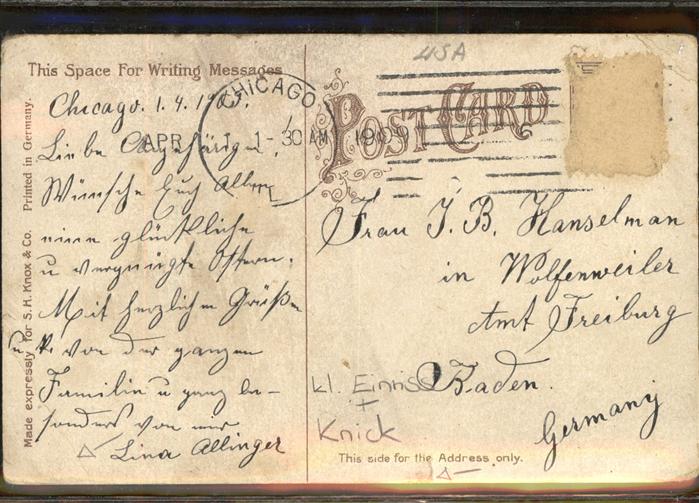 This Space For Writing Messages
Chicago. 1.4. 1909.
Liebe Angehörigen,
Wünsche Euch Allen
eine glückliche
u vergnügte Ostern.
Mit herzlichen Grüßen
u K. von der ganzen
Familie u ganz be-
sonders von mir
Lina Allinger
Made expressly for S. H. Knox & Co. Printed in Germany.
USA
CHICAGO
APR 1-30 AM 1909
POST CARD
Frau J. B. Hanselman
in Wolfenweiler
Amt Freiburg
Baden.
Germany
kl. Einriss
+
Knick
This side for the Address only.